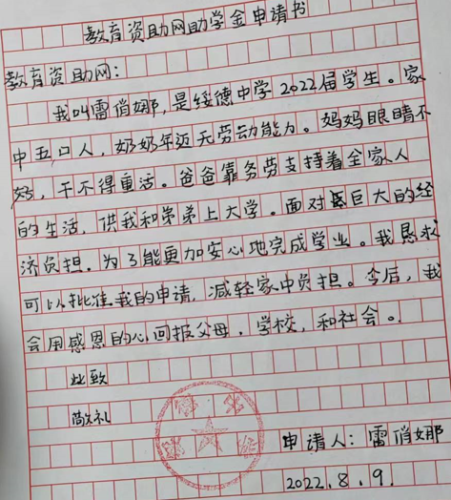 教育资助网助学金申请书
教育资助网：
我叫雷俏娜，是绥德中学2022届学生。家
中五口人，奶奶年迈无劳动能力。妈妈眼睛不
好，干不得重活。爸爸靠务劳支持着全家人
的生活，供我和弟弟上大学。面对巨大的经
济负担，为了能更加安心地完成学业。我恳求
可以批准我的申请，减轻家中负担。今后，我
会用感恩的心回报父母，学校，和社会。
此致
敬礼
申请人：雷俏娜
2022.8.9.